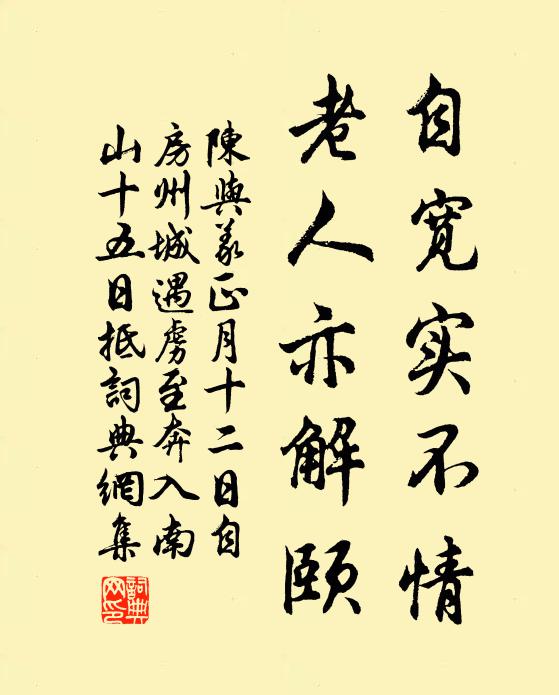 自宽实不情
老人亦解颐
陳與義正月十二日自
房州城遇虜至奔入南
山十五日抵詞典網集
詞典网印